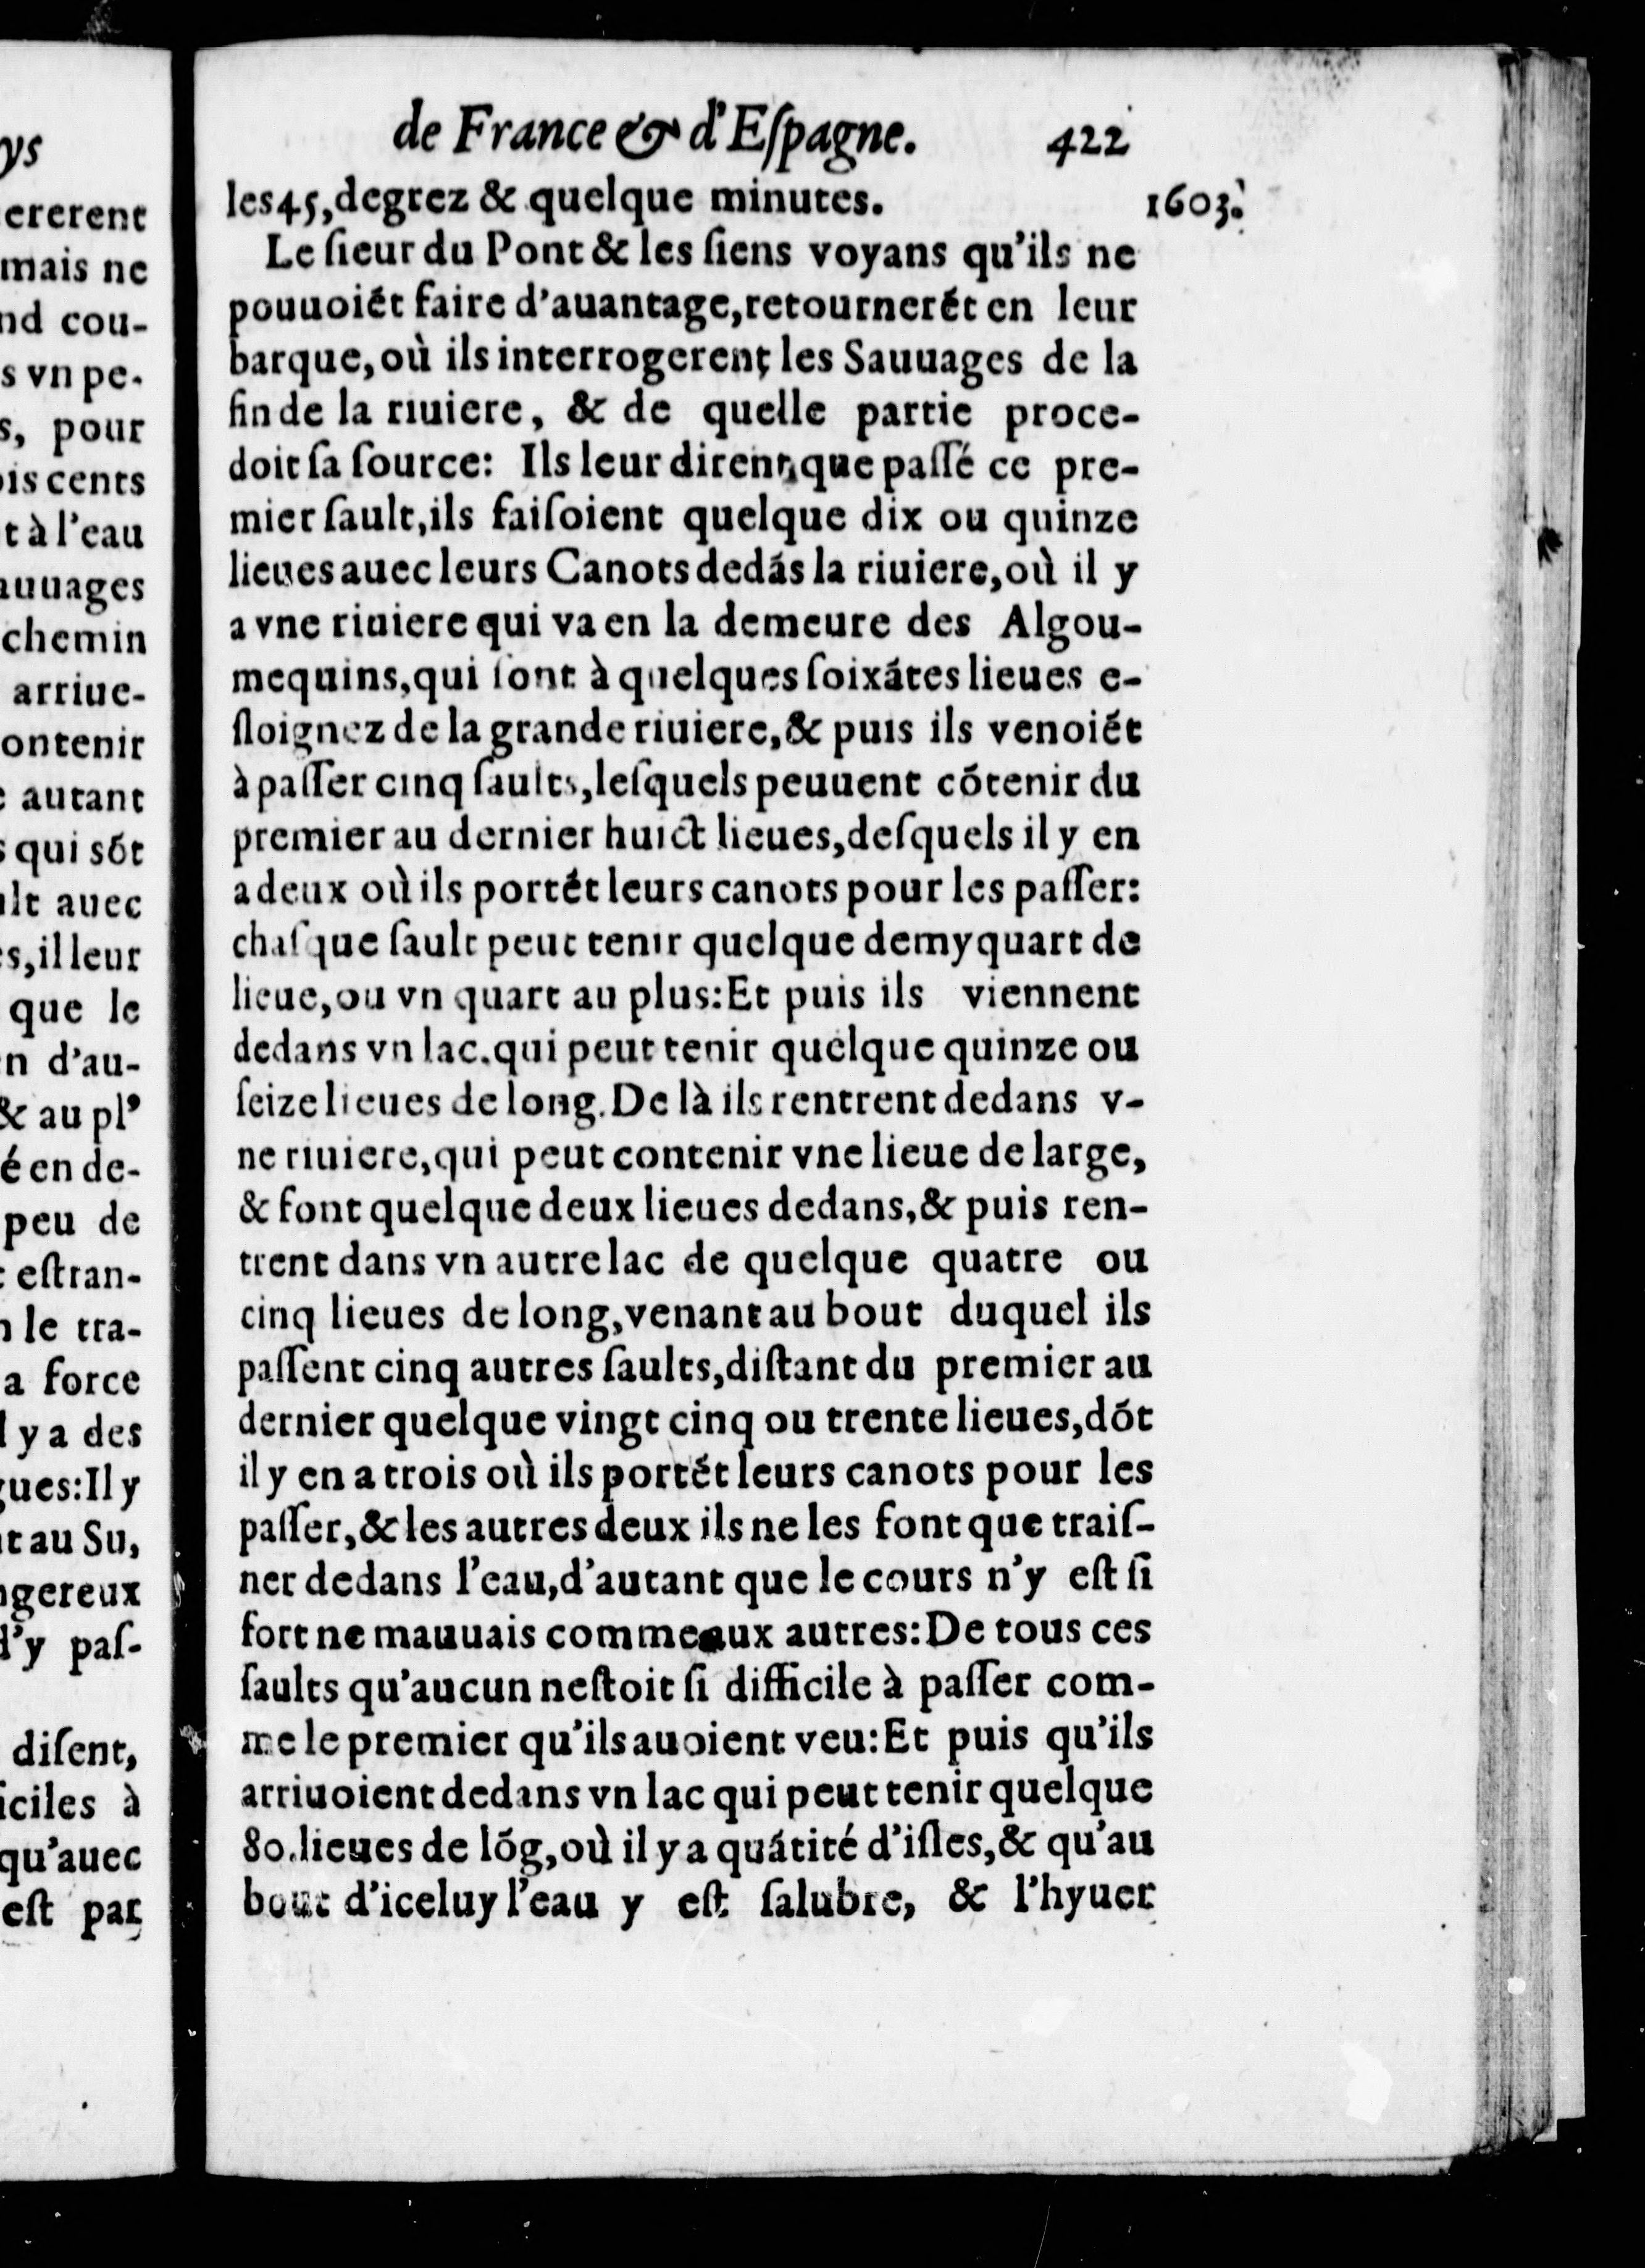 de France & d'Eſpagne. 422
les 45, degrez & quelque minutes. 1603.
Le ſieur du Pont & les ſiens voyans qu'ils ne
pouuoiẽt faire d'auantage, retournerẽt en leur
barque, où ils interrogerent les Sauuages de la
fin de la riuiere, & de quelle partie proce-
doit ſa ſource: Ils leur dirent, que paſſé ce pre-
mier ſault, ils faiſoient quelque dix ou quinze
lieues auec leurs Canots dedãs la riuiere, où il y
a vne riuiere qui va en la demeure des Algou-
mequins, qui ſont à quelques ſoixãtes lieues e-
ſloignez de la grande riuiere, & puis ils venoiẽt
à paſſer cinq ſaults, leſquels peuuent cõtenir du
premier au dernier huict lieues, deſquels il y en
a deux où ils portẽt leurs canots pour les paſſer:
chaſque ſault peut tenir quelque demy quart de
lieue, ou vn quart au plus: Et puis ils viennent
dedans vn lac, qui peut tenir quelque quinze ou
ſeize lieues de long. De là ils rentrent dedans v-
ne riuiere, qui peut contenir vne lieue de large,
& font quelque deux lieues dedans, & puis ren-
trent dans vn autre lac de quelque quatre ou
cinq lieues de long, venant au bout duquel ils
paſſent cinq autres ſaults, diſtant du premier au
dernier quelque vingt cinq ou trente lieues, dõt
il y en a trois où ils portẽt leurs canots pour les
paſſer, & les autres deux ils ne les font que traiſ-
ner dedans l'eau, d'autant que le cours n'y eſt ſi
fort ne mauuais comme aux autres: De tous ces
ſaults qu'aucun neſtoit ſi difficile à paſſer com-
me le premier qu'ils auoient veu: Et puis qu'ils
arriuoient dedans vn lac qui peut tenir quelque
80. lieues de lõg, où il y a quãtité d'iſles, & qu'au
bout d'iceluy l'eau y eſt ſalubre, & l'hyuer